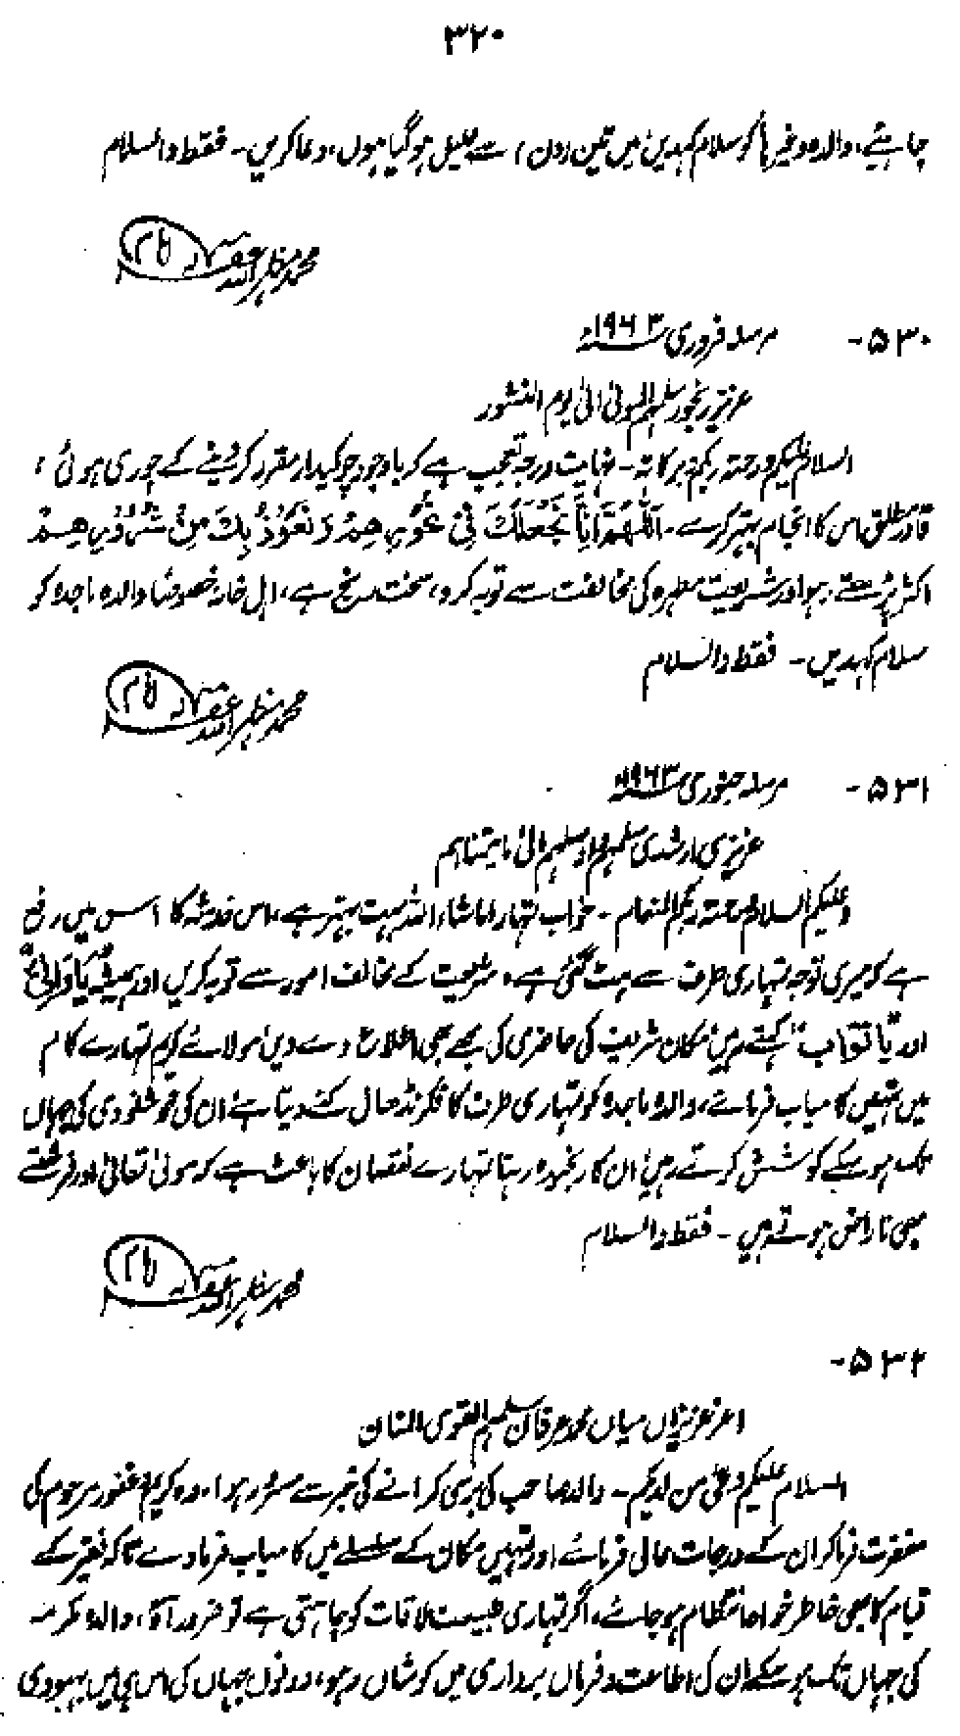 ۳۲۰
چاہیئے، والدہ وغیرہا کو سلام کہدیں میں تین دن سے علیل ہوگیا ہوں، دعا کریں۔ فقط والسلام
محمد مظہر اللہ غفرلہ
۵۳۰- مرسلہ فروری ۱۹۶۳ء
عزیز رنجور سلمہم المولیٰ الیٰ یوم النشور
السلام علیکم ورحمۃ ربکم وبرکاتہ۔ نہایت درجہ تعجب ہے کہ باوجود چوکیدار مقرر کر دینے کے چوری ہوئی،
قادر مطلق اس کا انجام بہتر کرے۔ اَللّٰھُمَّ اِنَّا نَجْعَلُکَ فِیْ نُحُوْرِھِمْ وَنَعُوْذُ بِکَ مِنْ شُرُوْرِھِمْ
اکثر پڑھتے رہو اور شریعت مطہرہ کی مخالفت سے توبہ کرو، سخت رنج ہے، اہل خانہ خصوصًا والدہ ماجدہ کو
سلام کہدیں۔ فقط والسلام
محمد مظہر اللہ غفرلہ
۵۳۱- مرسلہ جنوری ۱۹۶۳ء
عزیزی ارشدی سلمہم و سلمہم الیٰ ما یتمناہم
وعلیکم السلام ورحمۃ ربکم المنعام۔ خواب تمہارا ماشاء اللہ بہت بہتر ہے، اس خدشہ کا اس میں رفع
ہے کہ میری توجہ تمہاری طرف سے ہٹ گئی ہے، شریعت کے مخالف امور سے توبہ کریں اور ہمیشہ "یَا وَالِیُ"
اور "یَا تَوَّابُ" کہتے رہیں مکان شریف کی حاضری کی مجھے بھی اطلاع دے دیں مولائے کریم تمہارے کام
میں تمہیں کامیاب فرمائے، والدہ ماجدہ کو تمہاری طرف کا فکر نڈھال کئے دیتا ہے ان کی خوشنودی کی جہاں
تک ہو سکے کوشش کرتے رہیں ان کا رنجیدہ رہنا تمہارے نقصان کا باعث ہے کہ مولیٰ تعالیٰ اور فرشتے
بھی ناراض ہوتے ہیں۔ فقط والسلام
محمد مظہر اللہ غفرلہ
۵۳۲-
اعز عزیزاں میاں محمد عرفان سلمہم القوی المنان
السلام علیکم وعلیٰ من لدیکم۔ والد صاحب کی برسی کرانے کی خبر سے مسرور ہوا۔ وہ کریم غفور مرحوم کی
مغفرت فرما کر ان کے درجات عالی فرمائے اور تمہیں مکان کے سلسلے میں کامیاب فرما دے تاکہ فقیر کے
قیام کا بھی خاطر خواہ انتظام ہو جائے، اگر تمہاری طبیعت ملاقات کو چاہتی ہے تو ضرور آؤ، والدہ مکرمہ
کی جہاں تک ہو سکے ان کی اطاعت و فرماں برداری میں کوشاں رہو، دونوں جہاں کی اس ہی میں بہبودی